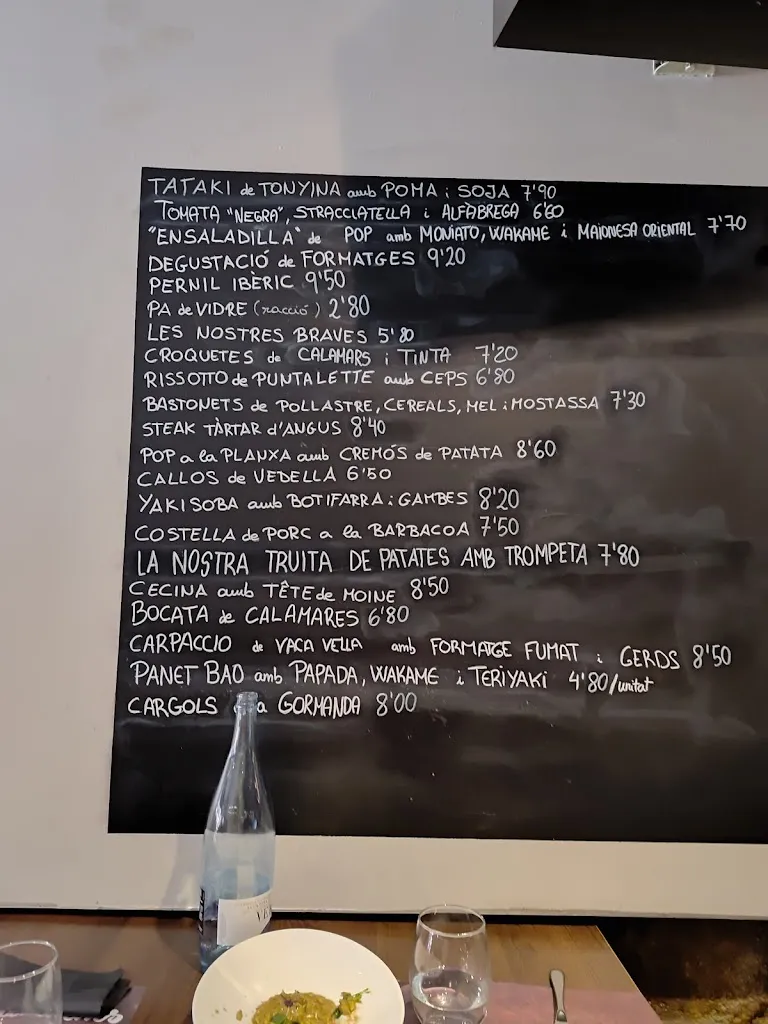 TATAKI de TONYINA amb POMA i SOJA 7'90
TOMATA "NEGRA", STRACCIATELLA i ALFÀBREGA 6'60
"ENSALADILLA" de POP amb MONIATO, WAKAME i MAIONESA ORIENTAL 7'70
DEGUSTACIÓ de FORMATGES 9'20
PERNIL IBÈRIC 9'50
PA de VIDRE (racció) 2'80
LES NOSTRES BRAVES 5'80
CROQUETES de CALAMARS i TINTA 7'20
RISSOTTO de PUNTALETTE amb CEPS 6'80
BASTONETS de POLLASTRE, CEREALS, MEL i MOSTASSA 7'30
STEAK TÀRTAR d'ANGUS 8'40
POP a la PLANXA amb CREMÓS de PATATA 8'60
CALLOS de VEDELLA 6'50
YAKISOBA amb BOTIFARRA i GAMBES 8'20
COSTELLA de PORC a la BARBACOA 7'50
LA NOSTRA TRUITA DE PATATES AMB TROMPETA 7'80
CECINA amb TÊTE de MOINE 8'50
BOCATA de CALAMARES 6'80
CARPACCIO de VACA VELLA amb FORMATGE FUMAT i GERDS 8'50
PANET BAO amb PAPADA, WAKAME i TERIYAKI 4'80/unitat
CARGOLS a GORMANDA 8'00